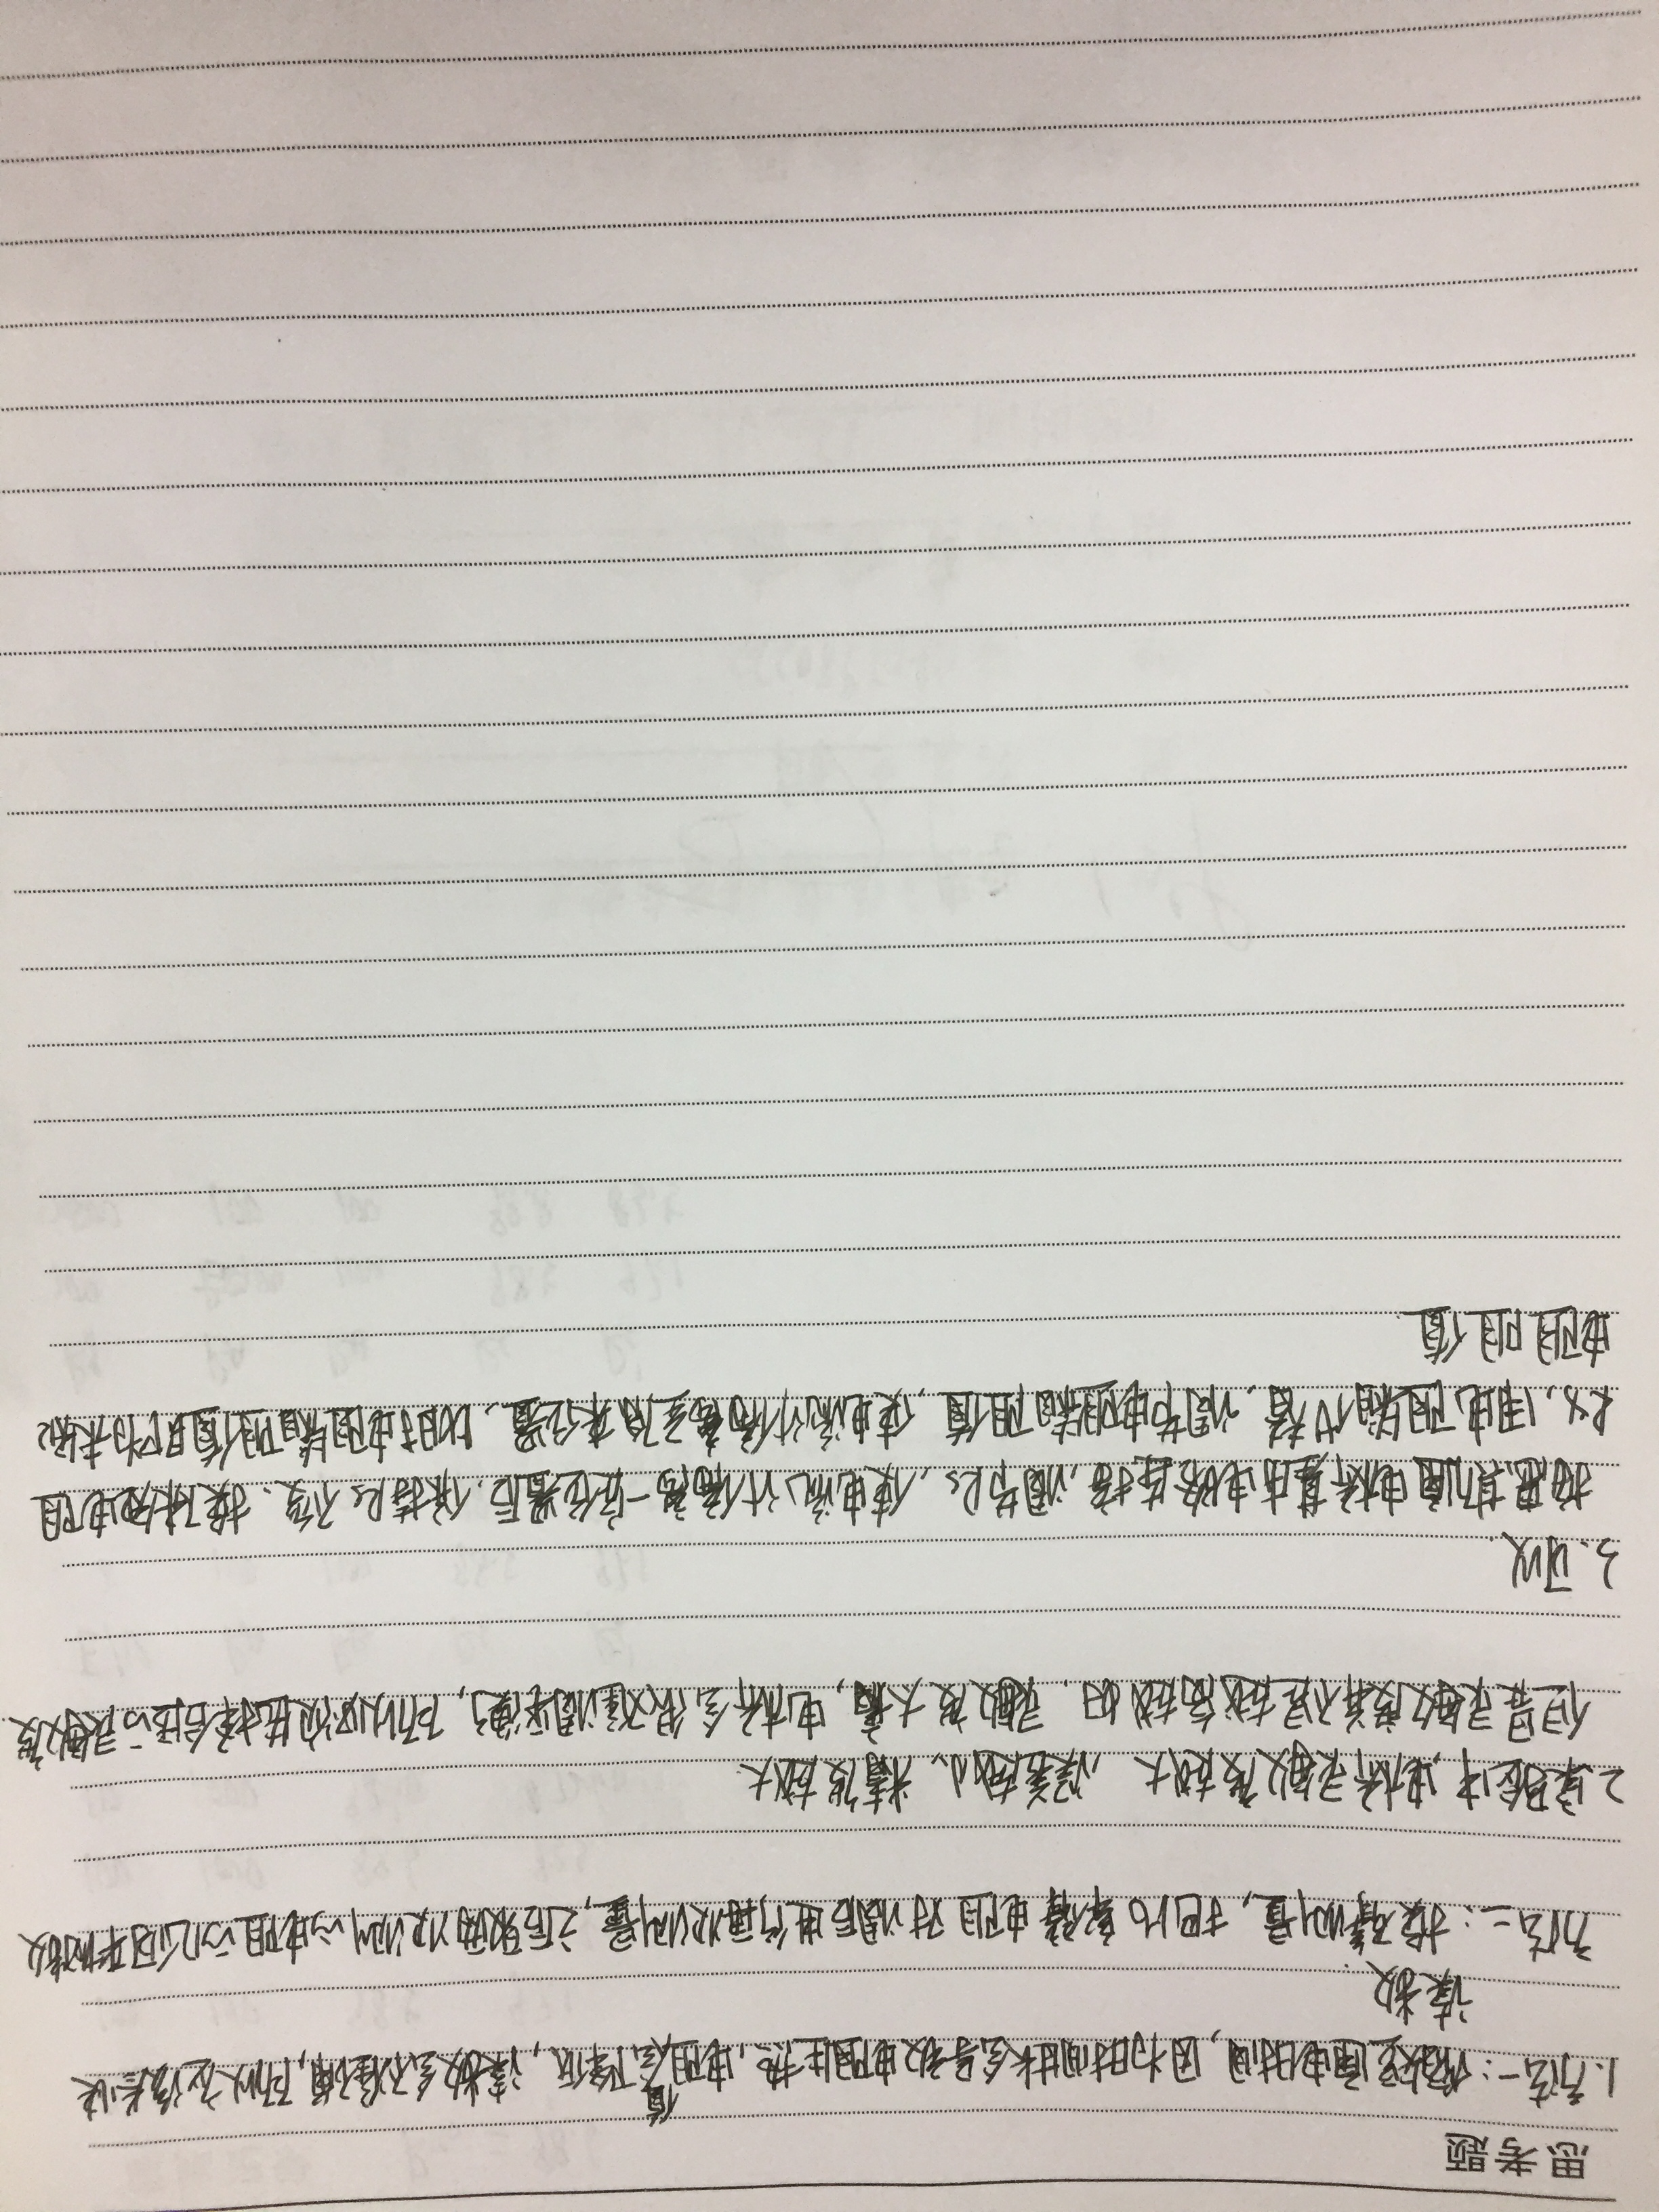 思考题
1、方法一：缩短通电时间，因为时间过长会导致电阻生热，电阻值会下降低，读数会不准确，所以应该尽快
读数．
方法二：换臂测量，把比率臂电阻对调后进行再次测量，之后取两次测的电阻的几何平均数
2、实验中，电桥灵敏度越大，误差越小、精度越大．
但是灵敏度并不是越高越好．灵敏度太高，电桥会很难调平衡，所以必须选择合适的灵敏度．
3、可以．
按惠斯通电桥基本电路连接，调节Rs，使电流计偏离一定位置后，保持Rs不变、换下未知电阻
Rx，用电阻箱代替，调节电阻箱阻值，使电流计偏离至原来位置，此时电阻箱阻值即为未知
电阻阻值．